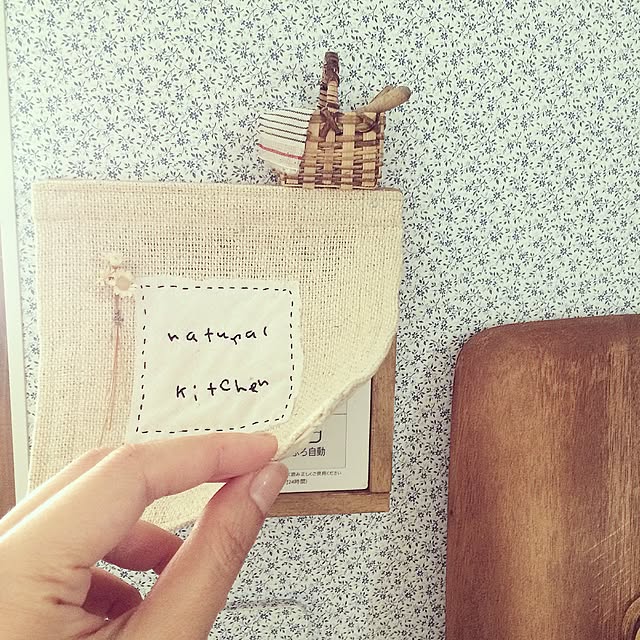 natural
kitchen
ふろ自動
(24時間)